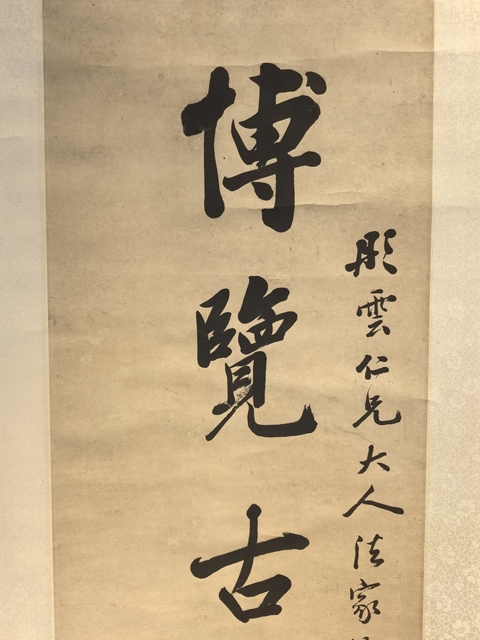 彤雲仁兄大人法家
博覽古